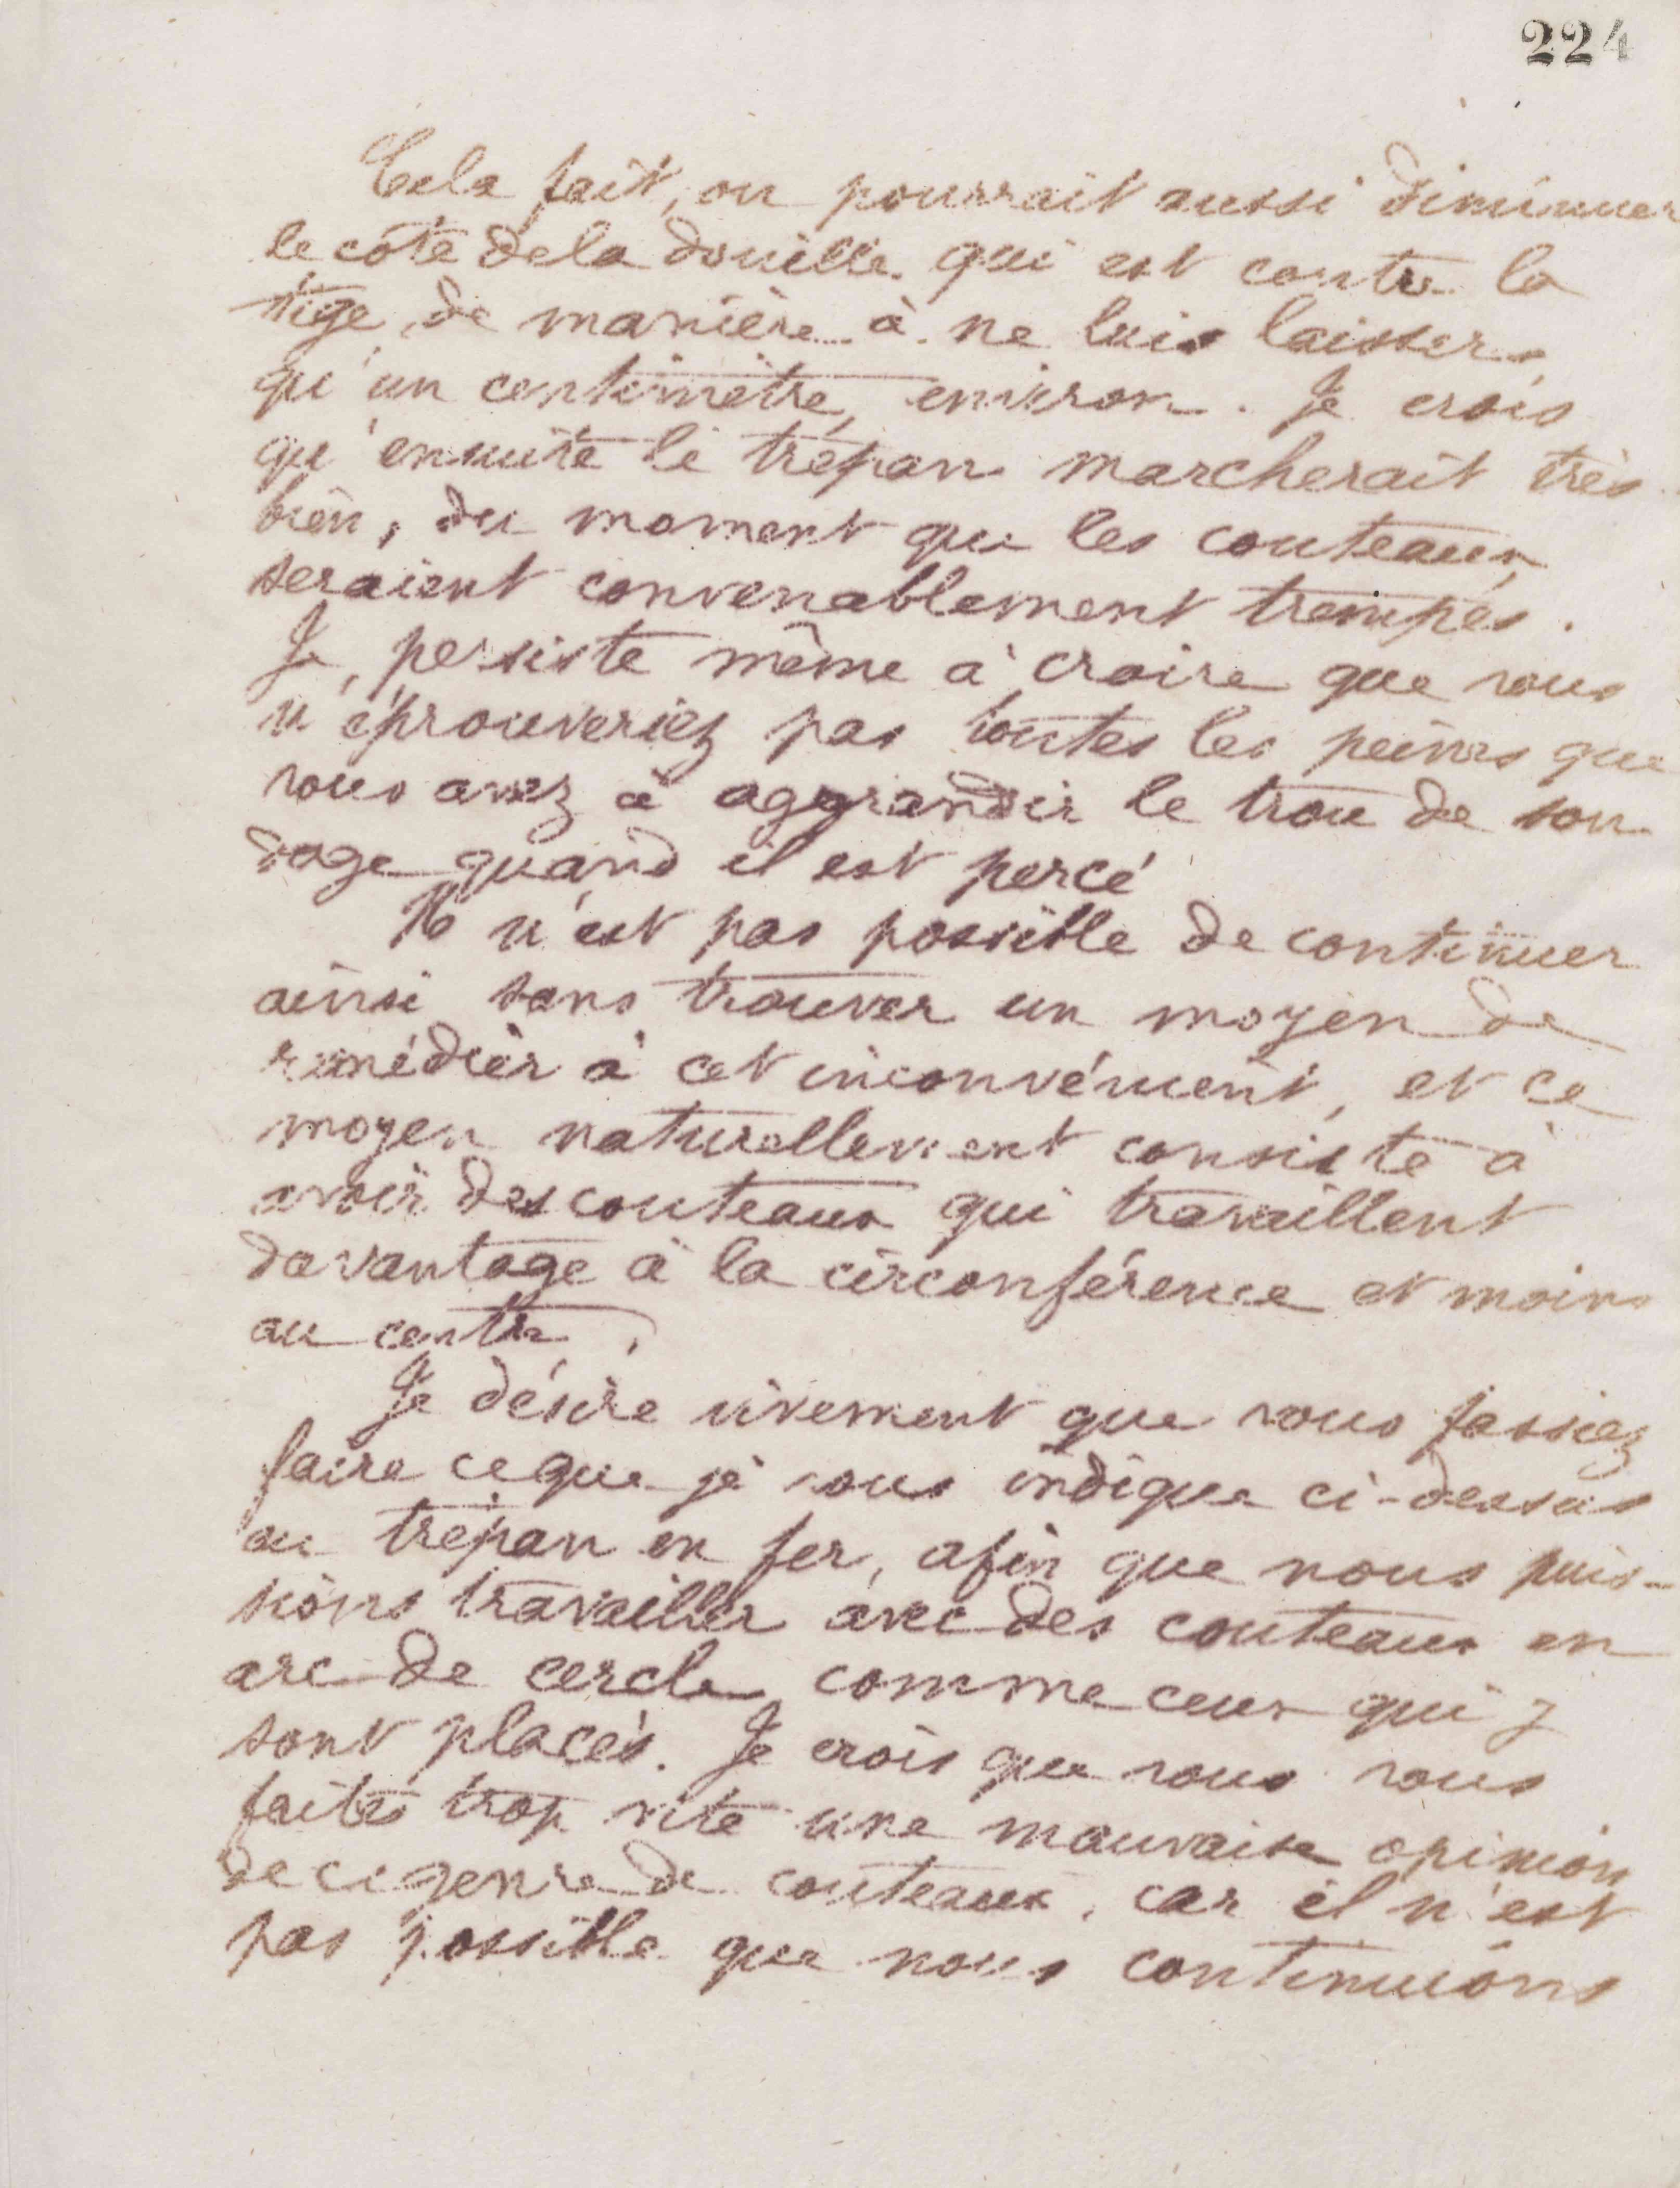 224
Cela fait, on pourrait aussi diminuer
le côté de la douille qui est contre la
tige, de manière à ne lui laisser
qu'un centimètre, environ. Je crois
qu'ensuite le trépan marcherait très
bien, du moment que les couteaux
seraient convenablement trempés.
Je persiste même à croire que vous
n'éprouveriez pas toutes les peines que
vous avez à aggrandir le trou de son
dage quand il est percé
Il n'est pas possible de continuer
ainsi sans trouver un moyen de
remédier à cet inconvénient, et ce
moyen naturellement consiste à
avoir des couteaux qui travaillent
davantage à la circonférence et moins
au centre.
Je désire vivement que vous fassiez
faire ce que je vous indique ci-dessus
au trépan en fer, afin que nous puis-
sions travailler avec des couteaux en
arc de cercle comme ceux qui y
sont placés. Je crois que vous vous
faites trop vite une mauvaise opinion
de ce genre de couteaux, car il n'est
pas possible que nous continuions